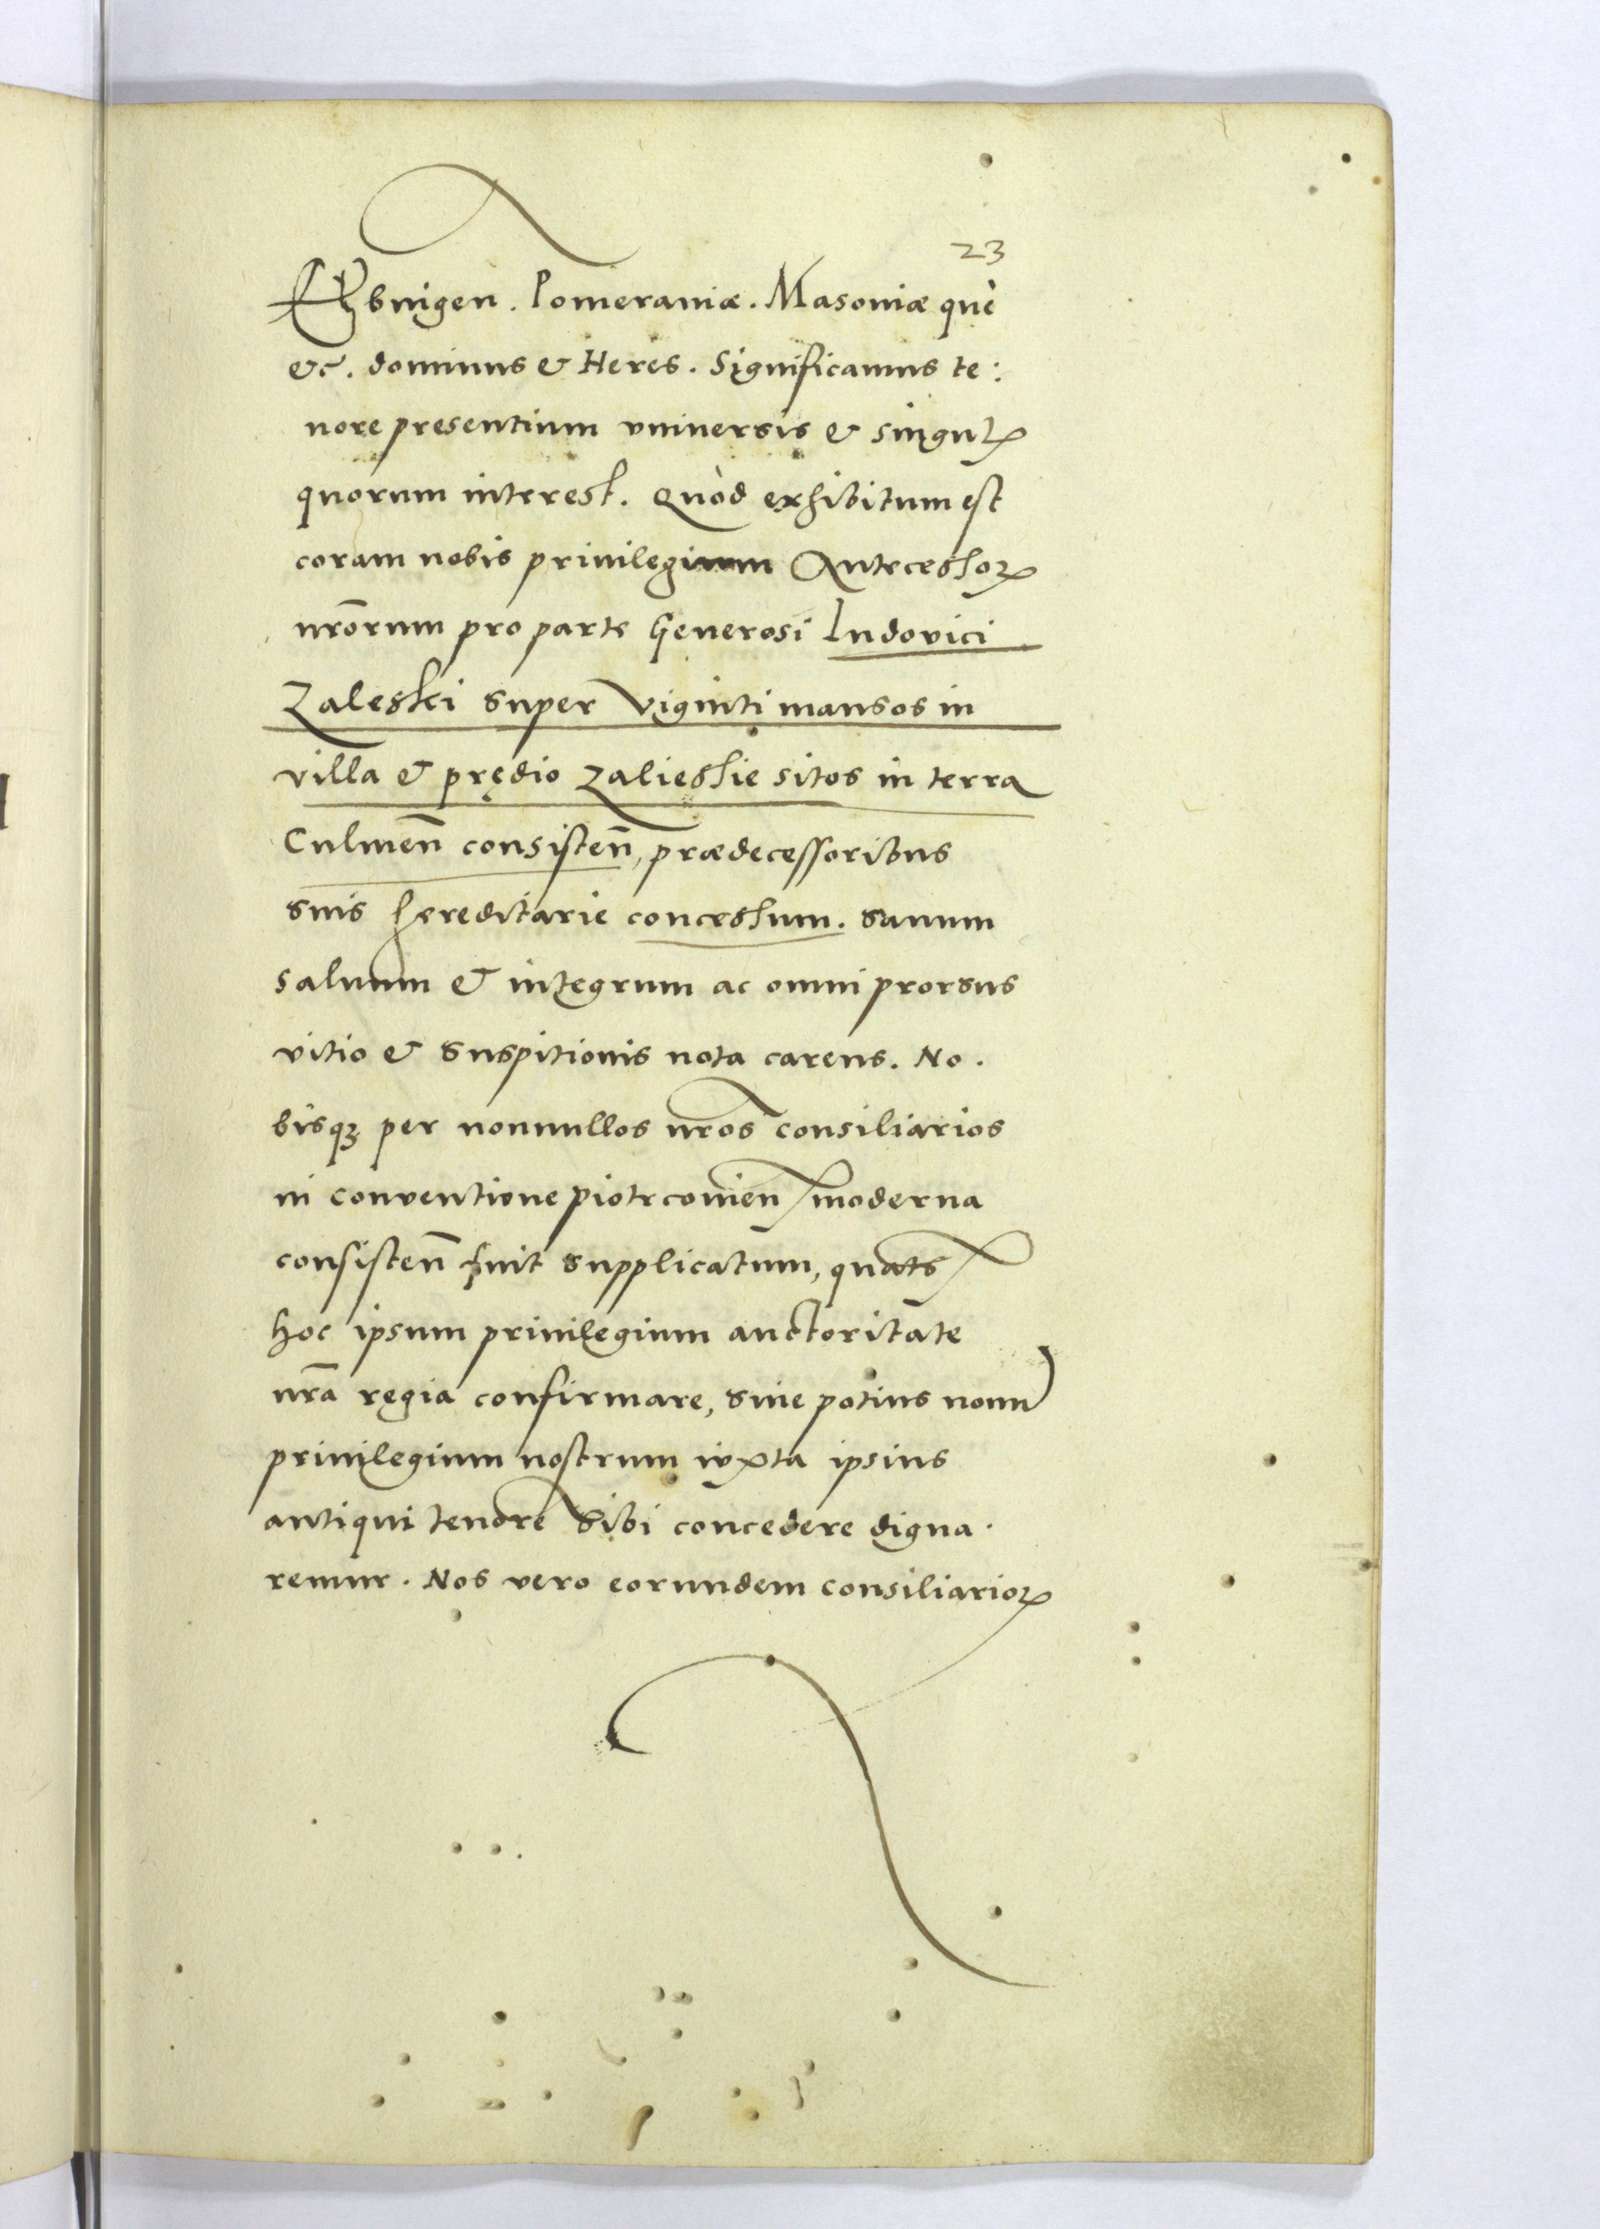 23
Elbingen. Pomeraniæ. Masoniæ què
&c. dominus & Heres. Significamus te:
nore presentium vniuersis & singulꝝ
quorum interest. Quòd exhibitum est
coram nobis priuilegium Antecessorꝝ
nr̃orum pro parte Generosi Ludovici
Zaleski super viginti mansos in
villa & prędio Zaliesie sitos in terra
Culmen̄ consisten̄, prædecessoribus
suis hereditarie concessum. sanum
saluum & integrum ac omni prorsus
vitio & suspitionis nota carens. No.
bisqꝫ per nonnullos nr̃os consiliarios
in conventione piotrcouien̄ moderna
consisten̄ fuit supplicatum, quats̄
hoc ipsum priuilegium auctoritate
nr̃a regia confirmare, siue potius nouū
priuilegium nostrum iuxta ipsius
antiqui tenore sibi concedere digna.
remur. Nos vero eorundem consiliariorꝝ